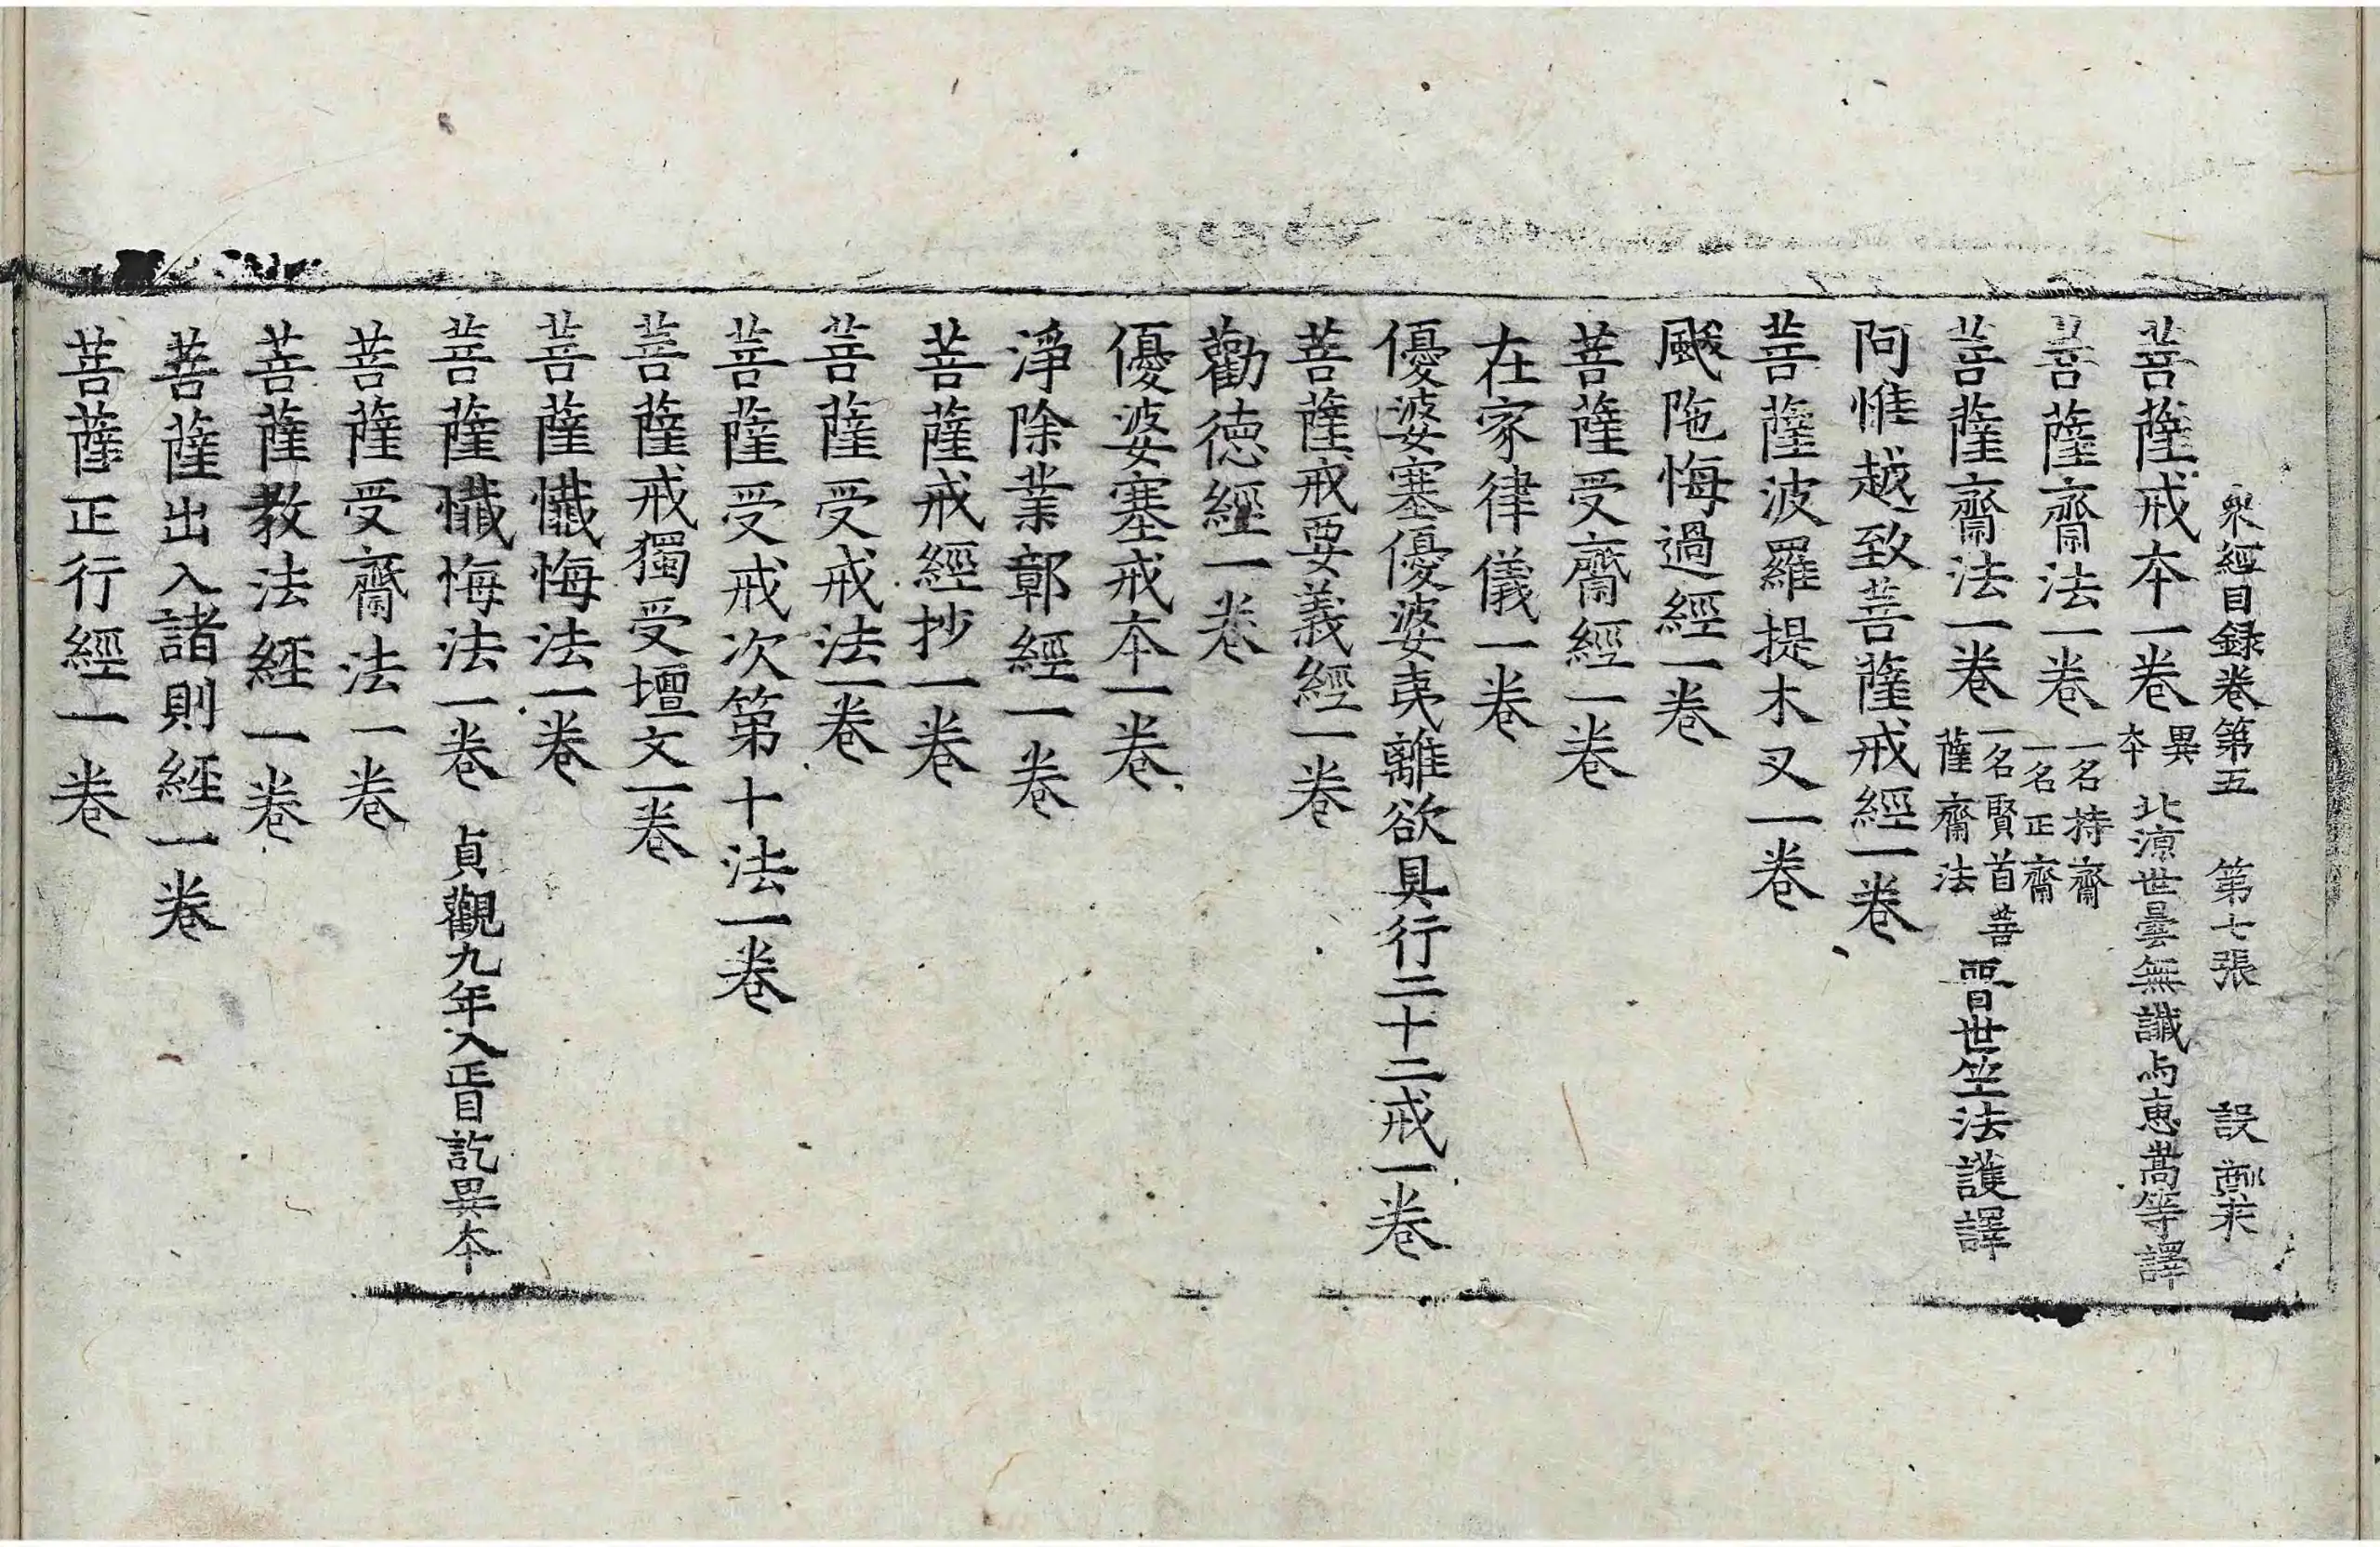 衆經目録卷第五　第七張　設
菩薩戒夲一卷 異夲 北涼世曇無讖与惠嵩等譯
菩薩齋法一卷 一名持齋 一名正齋
菩薩齋法一卷 一名賢首菩薩齋法 西晋世竺法護譯
阿惟越致菩薩戒經一卷
菩薩波羅提木叉一卷
颰陁悔過經一卷
菩薩受齋經一卷
在家律儀一卷
優婆塞優婆夷離欲具行二十二戒一卷
菩薩戒要義經一卷
勸德經一卷
優婆塞戒夲一卷
淨除業鄣經一卷
菩薩戒經抄一卷
菩薩受戒法一卷
菩薩受戒次第十法一卷
菩薩戒獨受壇文一卷
菩薩懺悔法一卷
菩薩懺悔法一卷 貞觀九年入正目訖異夲
菩薩受齋法一卷
菩薩教法經一卷
菩薩出入諸則經一卷
菩薩正行經一卷